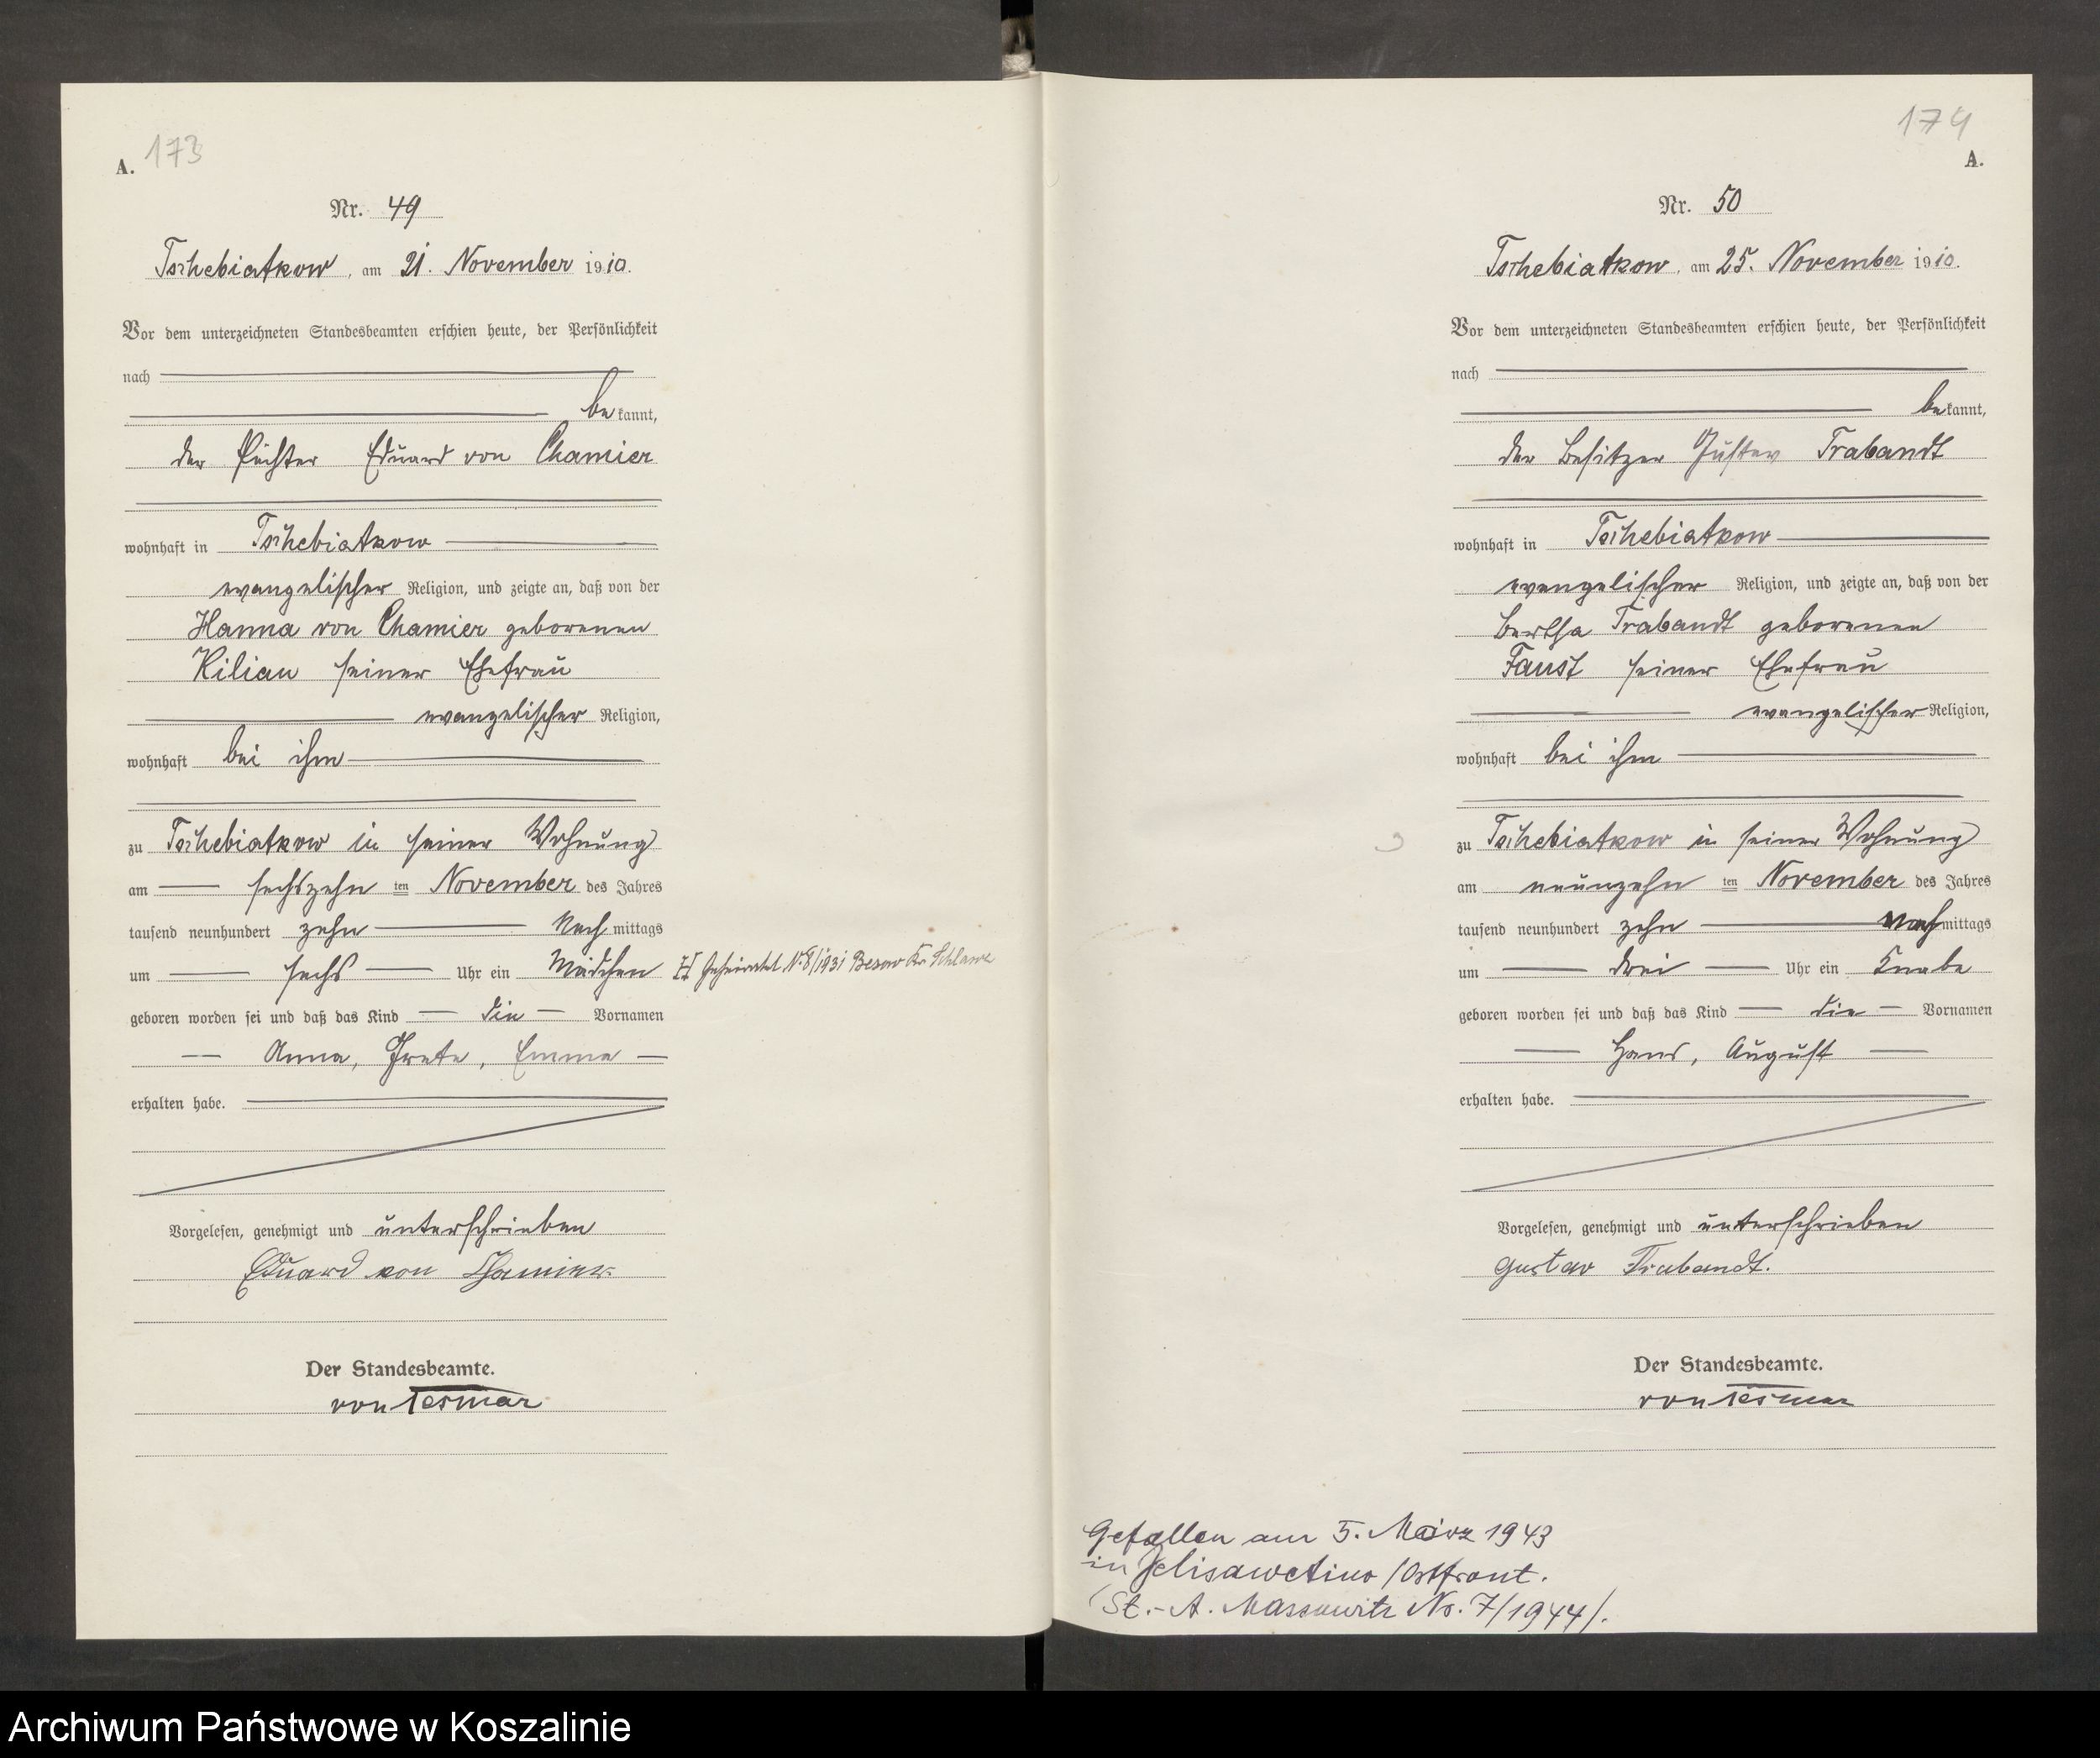 173
A.
Nr. 49
Tschebiatkow, am 21. November 1910.
Vor dem unterzeichneten Standesbeamten erschien heute, der Persönlichkeit
nach
bekannt,
der Pächter Eduard von Chamier
wohnhaft in Tschebiatkow
evangelischer Religion, und zeigte an, daß von der
Hanna von Chamier geborenen
Kilian seiner Ehefrau
evangelischer Religion,
wohnhaft bei ihm
zu Tschebiatkow in seiner Wohnung
am sechszehn ten November des Jahres
tausend neunhundert zehn Nachmittags
um sechs Uhr ein Mädchen
geboren worden sei und daß das Kind die Vornamen
Anna, Grete, Emma
erhalten habe.
Vorgelesen, genehmigt und unterschrieben
Eduard von Chamier.
Der Standesbeamte.
von Tesmar
Geheiratet Nr 8/1931 Besow Kr. Schlawe
174
A.
Nr. 50
Tschebiatkow, am 25. November 1910.
Vor dem unterzeichneten Standesbeamten erschien heute, der Persönlichkeit
nach
bekannt,
der Besitzer Gustav Trabandt
wohnhaft in Tschebiatkow
evangelischer Religion, und zeigte an, daß von der
Bertha Trabandt geborenen
Faust seiner Ehefrau
evangelischer Religion,
wohnhaft bei ihm
zu Tschebiatkow in seiner Wohnung
am neunzehn ten November des Jahres
tausend neunhundert zehn nachmittags
um drei Uhr ein Knabe
geboren worden sei und daß das Kind die Vornamen
Hans, August
erhalten habe.
Vorgelesen, genehmigt und unterschrieben
Gustav Trabandt.
Der Standesbeamte.
von Tesmar
Gefallen am 5. März 1943
in Jelisawetino /Ostfront.
(St.-A. Massowitz No. 7/1944/.
Archiwum Państwowe w Koszalinie